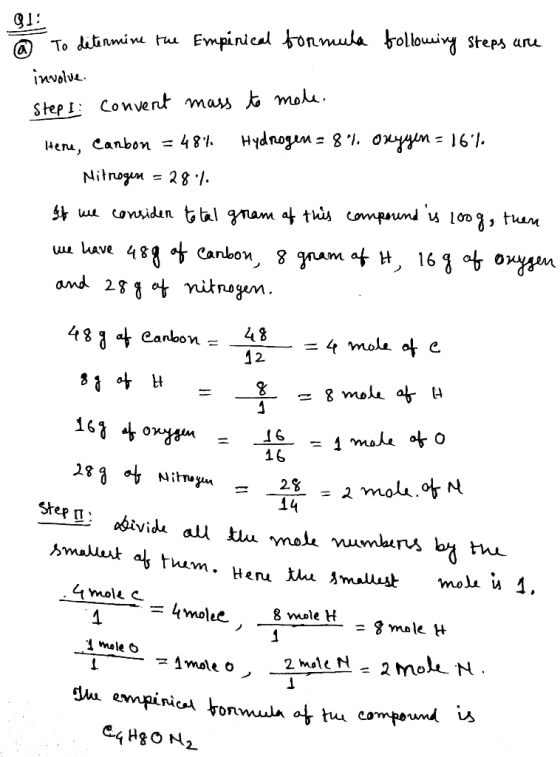 Q1:
(a) To determine the Empirical formula following steps are
involve.
Step I: Convert mass to mole.
Here, Carbon = 48%. Hydrogen = 8%. Oxygen = 16%.
Nitrogen = 28%.
If we consider total gram of this compound is 100g, then
we have 48g of Carbon, 8 gram of H, 16 g of oxygen
and 28 g of nitrogen.
48 g of Carbon = 48/12 = 4 mole of C
8 g of H = 8/1 = 8 mole of H
16g of oxygen = 16/16 = 1 mole of O
28g of Nitrogen = 28/14 = 2 mole. of N
Step II: Divide all the mole numbers by the
smallest of them. Here the smallest mole is 1.
4 mole C/1 = 4 mole C, 8 mole H/1 = 8 mole H
1 mole O/1 = 1 mole O, 2 mole N/1 = 2 mole N.
The empirical formula of the compound is
C4H8ON2